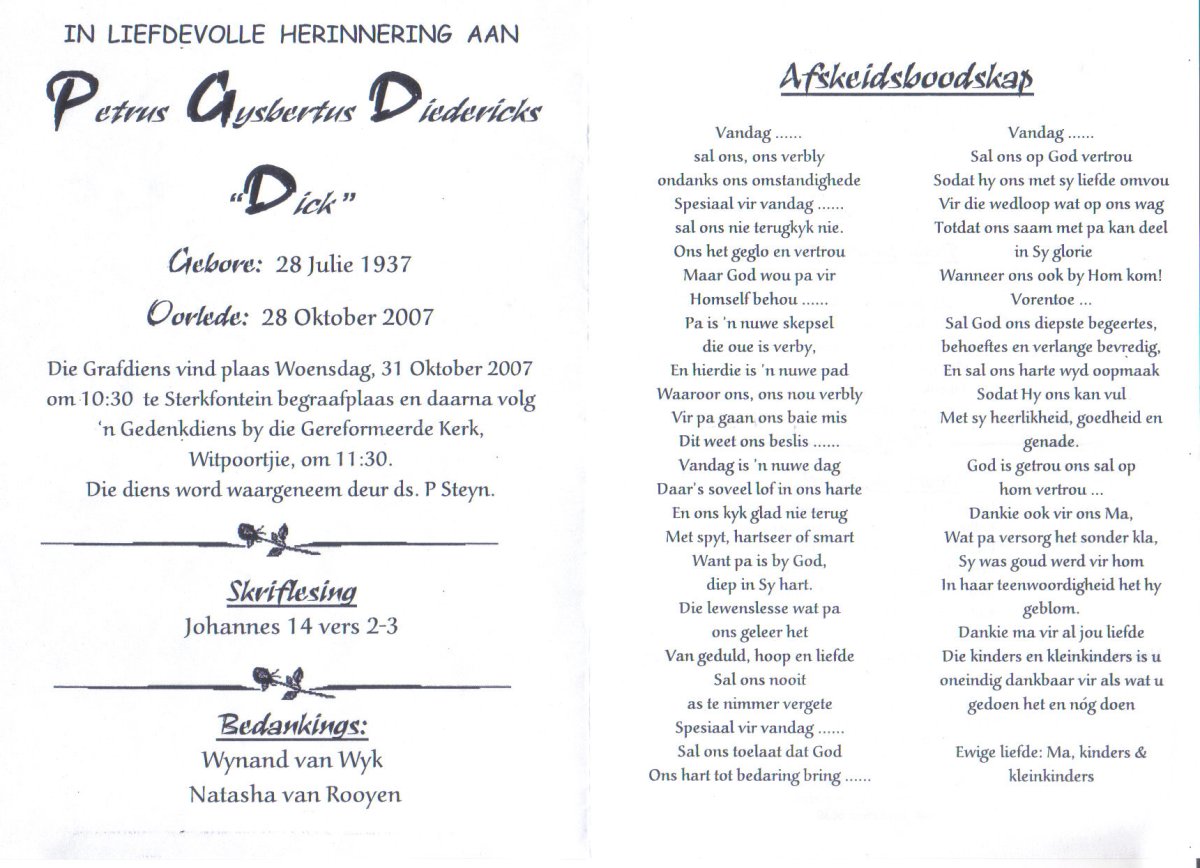 IN LIEFDEVOLLE HERINNERING AAN
Petrus Gysbertus Diedericks
“Dick”
Gebore: 28 Julie 1937
Oorlede: 28 Oktober 2007
Die Grafdiens vind plaas Woensdag, 31 Oktober 2007
om 10:30 te Sterkfontein begraafplaas en daarna volg
‘n Gedenkdiens by die Gereformeerde Kerk,
Witpoortjie, om 11:30.
Die diens word waargeneem deur ds. P Steyn.
Skriflesing
Johannes 14 vers 2-3
Bedankings:
Wynand van Wyk
Natasha van Rooyen
Afskeidsboodskap
Vandag ......
sal ons, ons verbly
ondanks ons omstandighede
Spesiaal vir vandag ......
sal ons nie terugkyk nie.
Ons het geglo en vertrou
Maar God wou pa vir
Homself behou ......
Pa is 'n nuwe skepsel
die oue is verby,
En hierdie is 'n nuwe pad
Waaroor ons, ons nou verbly
Vir pa gaan ons baie mis
Dit weet ons beslis ......
Vandag is 'n nuwe dag
Daar's soveel lof in ons harte
En ons kyk glad nie terug
Met spyt, hartseer of smart
Want pa is by God,
diep in Sy hart.
Die lewenslesse wat pa
ons geleer het
Van geduld, hoop en liefde
Sal ons nooit
as te nimmer vergete
Spesiaal vir vandag ......
Sal ons toelaat dat God
Ons hart tot bedaring bring ......
Vandag ......
Sal ons op God vertrou
Sodat hy ons met sy liefde omvou
Vir die wedloop wat op ons wag
Totdat ons saam met pa kan deel
in Sy glorie
Wanneer ons ook by Hom kom!
Vorentoe ...
Sal God ons diepste begeertes,
behoeftes en verlange bevredig,
En sal ons harte wyd oopmaak
Sodat Hy ons kan vul
Met sy heerlikheid, goedheid en
genade.
God is getrou ons sal op
hom vertrou ...
Dankie ook vir ons Ma,
Wat pa versorg het sonder kla,
Sy was goud werd vir hom
In haar teenwoordigheid het hy
geblom.
Dankie ma vir al jou liefde
Die kinders en kleinkinders is u
oneindig dankbaar vir als wat u
gedoen het en nóg doen
Ewige liefde: Ma, kinders &
kleinkinders